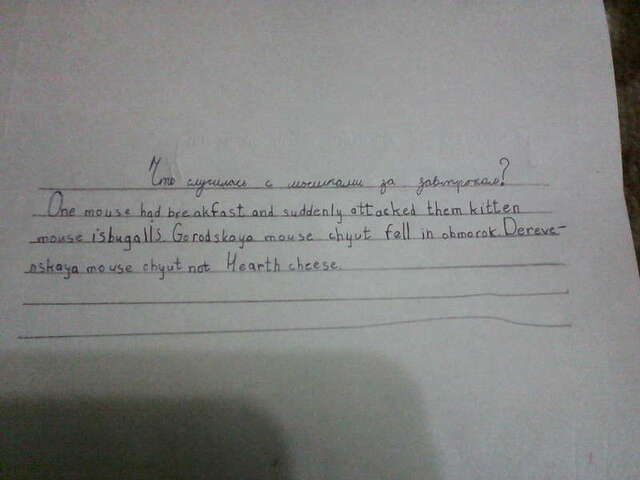 Что случилась с мышками за завтраком?
One mouse had breakfast and suddenly attacked them kitten
mouse isbugalis. Gorodskaya mouse chyut fell in obmorok. Dereve-
nskaya mouse chyut not Hearth cheese.